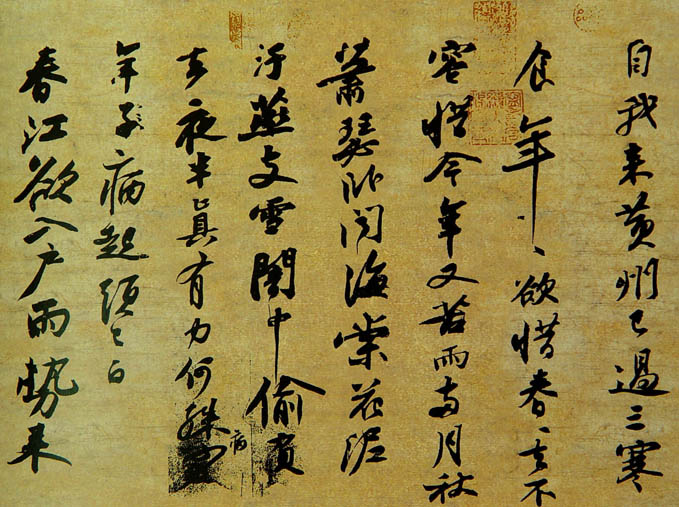 自我来黄州已過三寒
食年、欲惜春、去不
容惜今年又苦雨兩月秋
蕭瑟卧聞海棠花泥
汙燕支雪闇中偷負
去夜半真有力何殊
病
年子病起頭已白
春江欲入户雨勢来